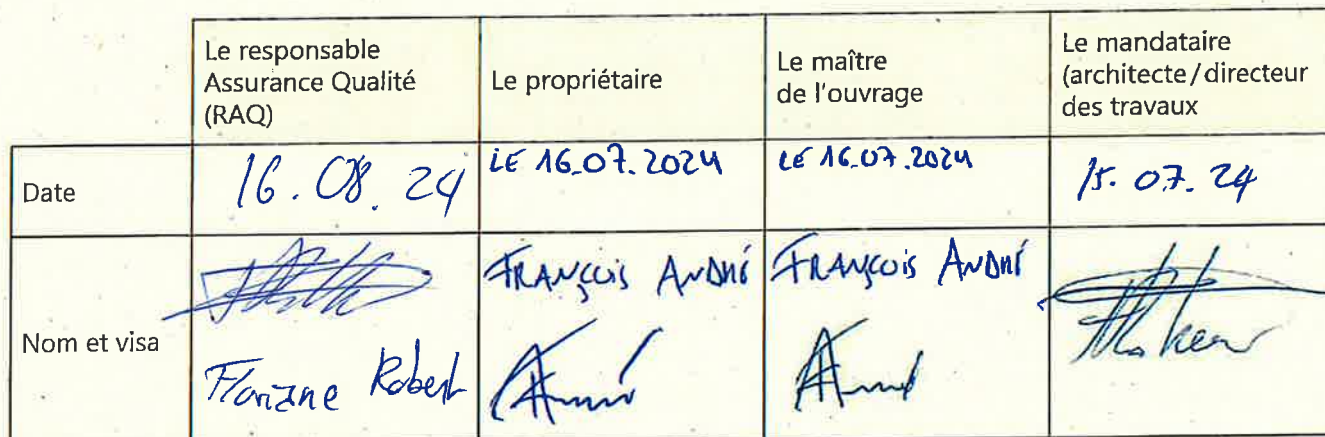 Le responsable
Assurance Qualité
(RAQ)
Le propriétaire
Le maître
de l'ouvrage
Le mandataire
(architecte/directeur
des travaux
Date
16.08.24
LE 16.07.2024
LE 16.07.2024
15.07.24
Nom et visa
Floriane Robert
FRANÇOIS ANDRÉ
FRANÇOIS ANDRÉ